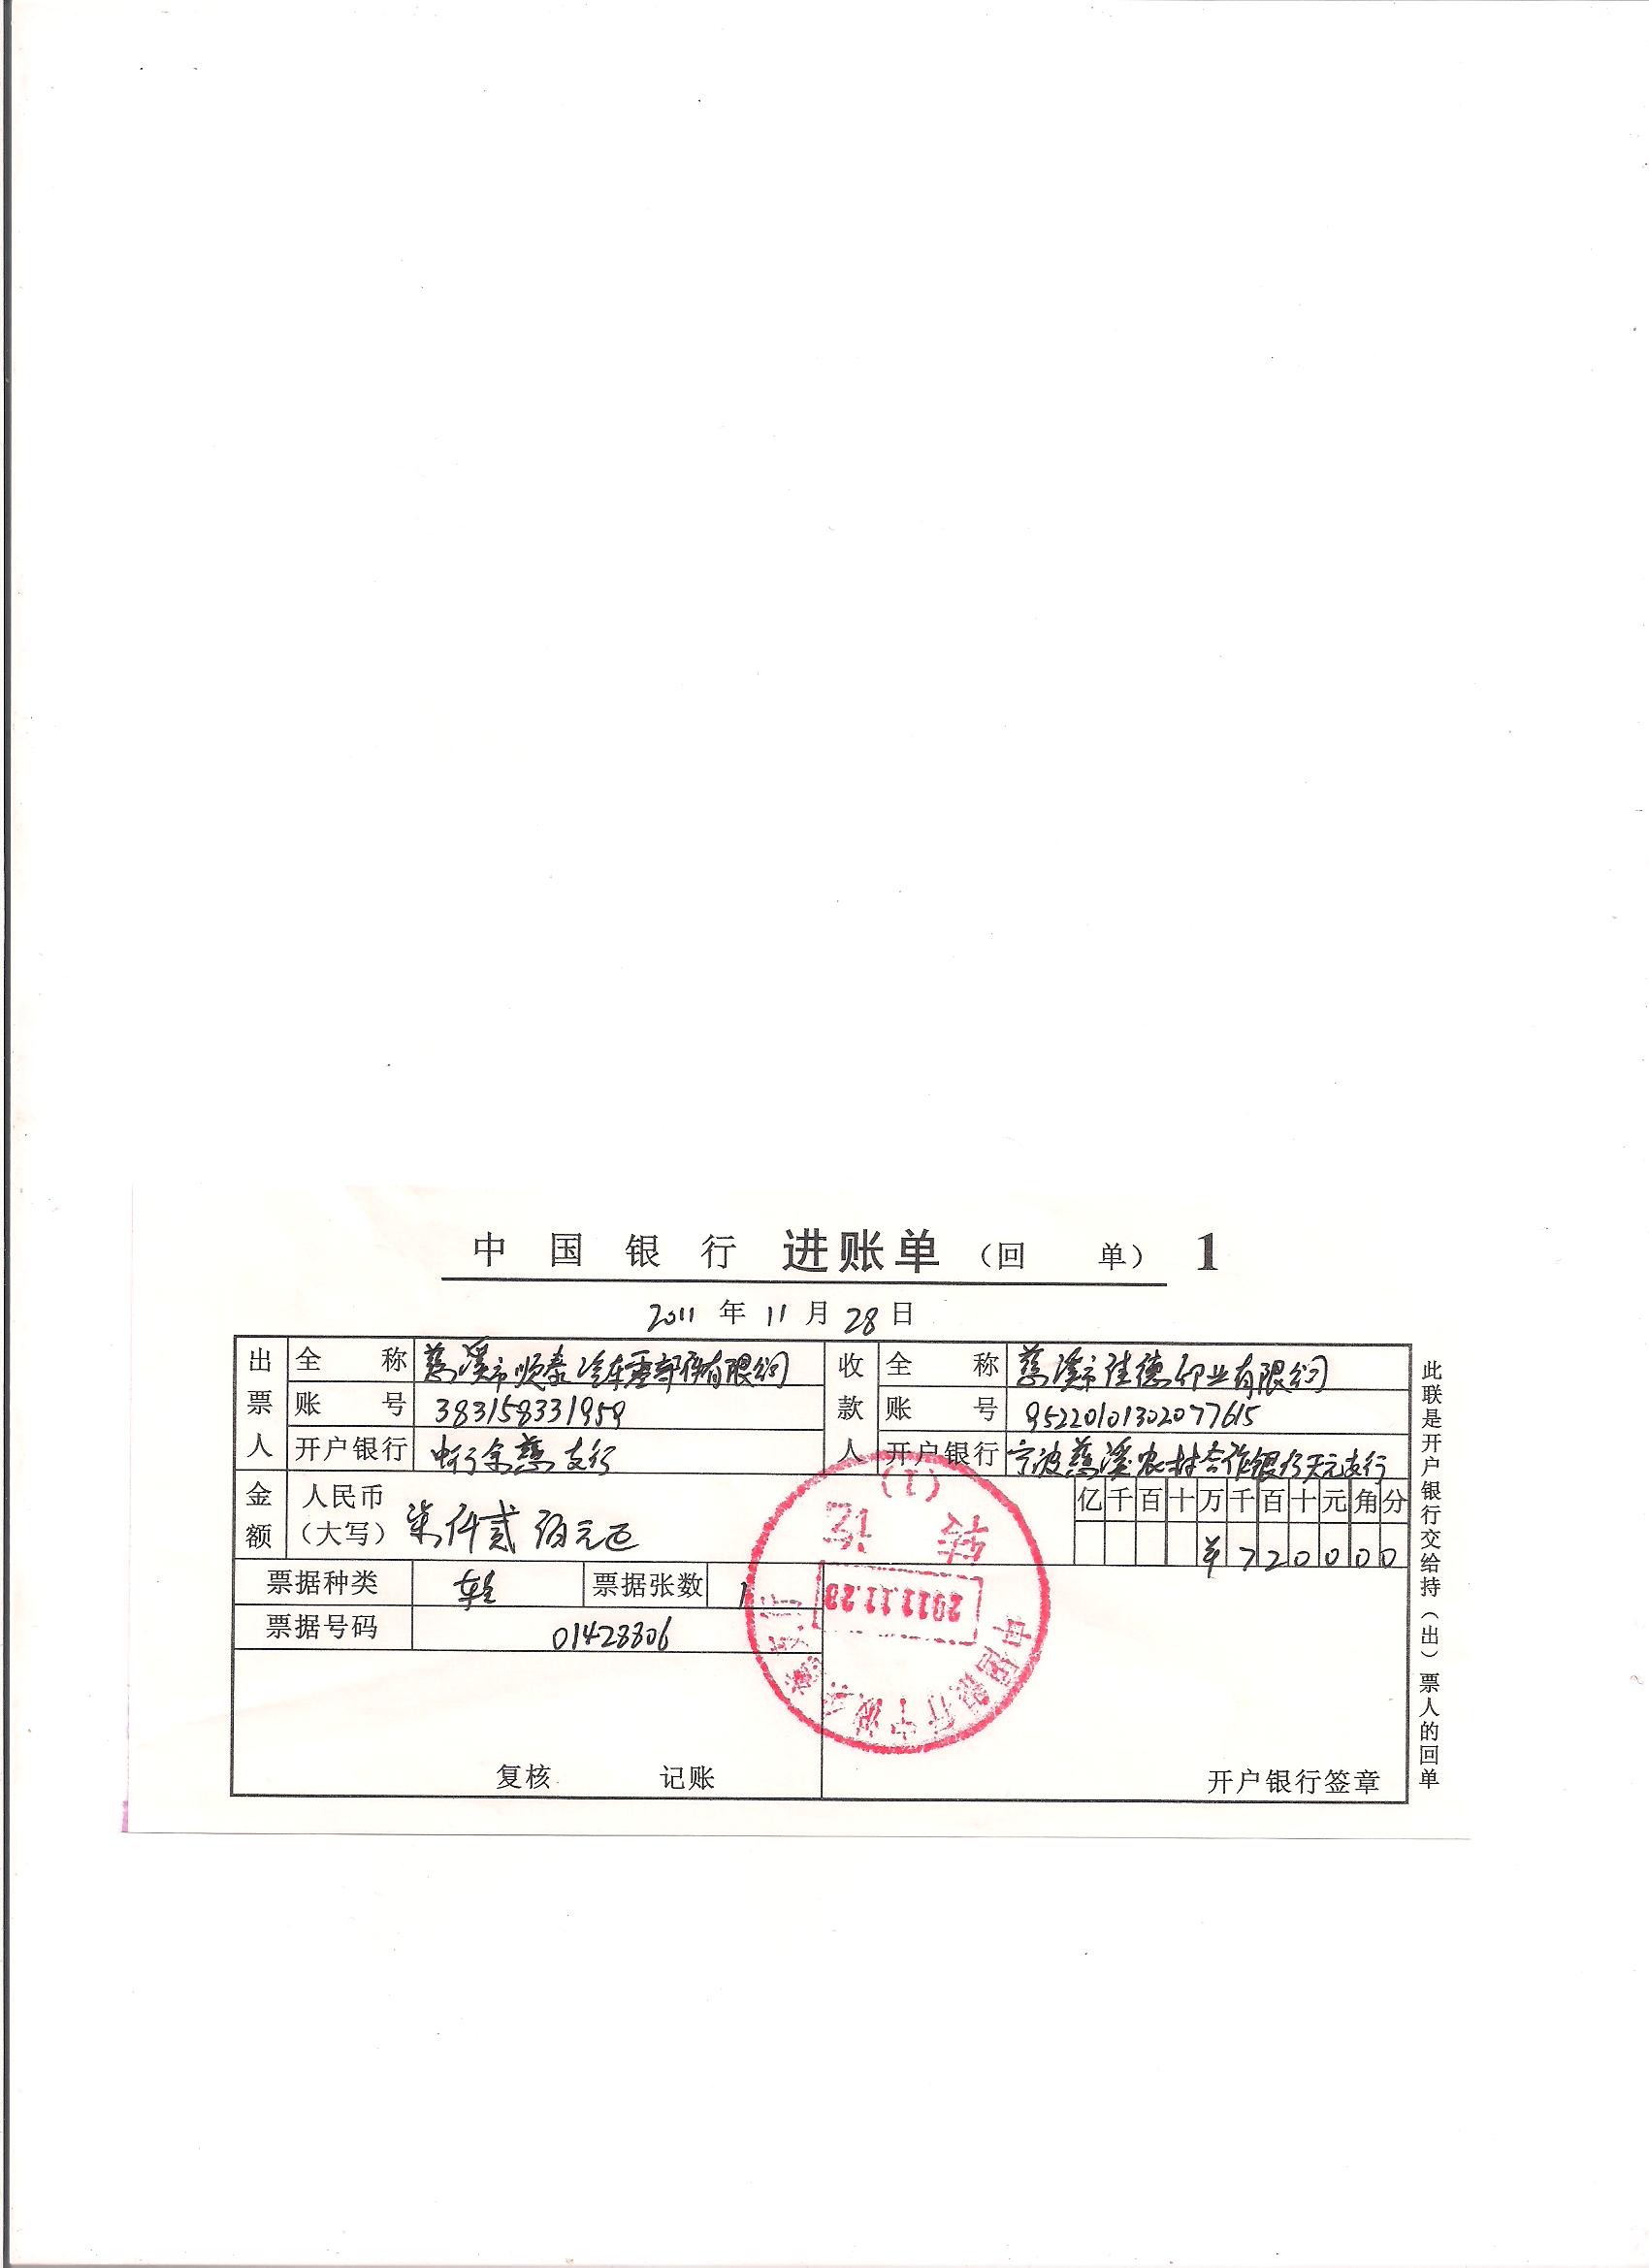 中国银行 进账单（回 单） 1
2011 年 11 月 28 日
出票人 全称 慈溪市顺泰汽车零部件有限公司 收款人 全称 慈溪市佳德印业有限公司
账号 383158331959 账号 95220101302077615
开户银行 中行余慈支行 开户银行 宁波慈溪农村合作银行天元支行
金额 人民币（大写） 柒仟贰佰元正 亿千百十万千百十元角分
¥720000
票据种类 票据张数 1
票据号码 01428806
复核 记账 开户银行签章
此联是开户银行交给持（出）票人的回单
中国银行宁波余慈支行
2011.11.28
转讫
(1)